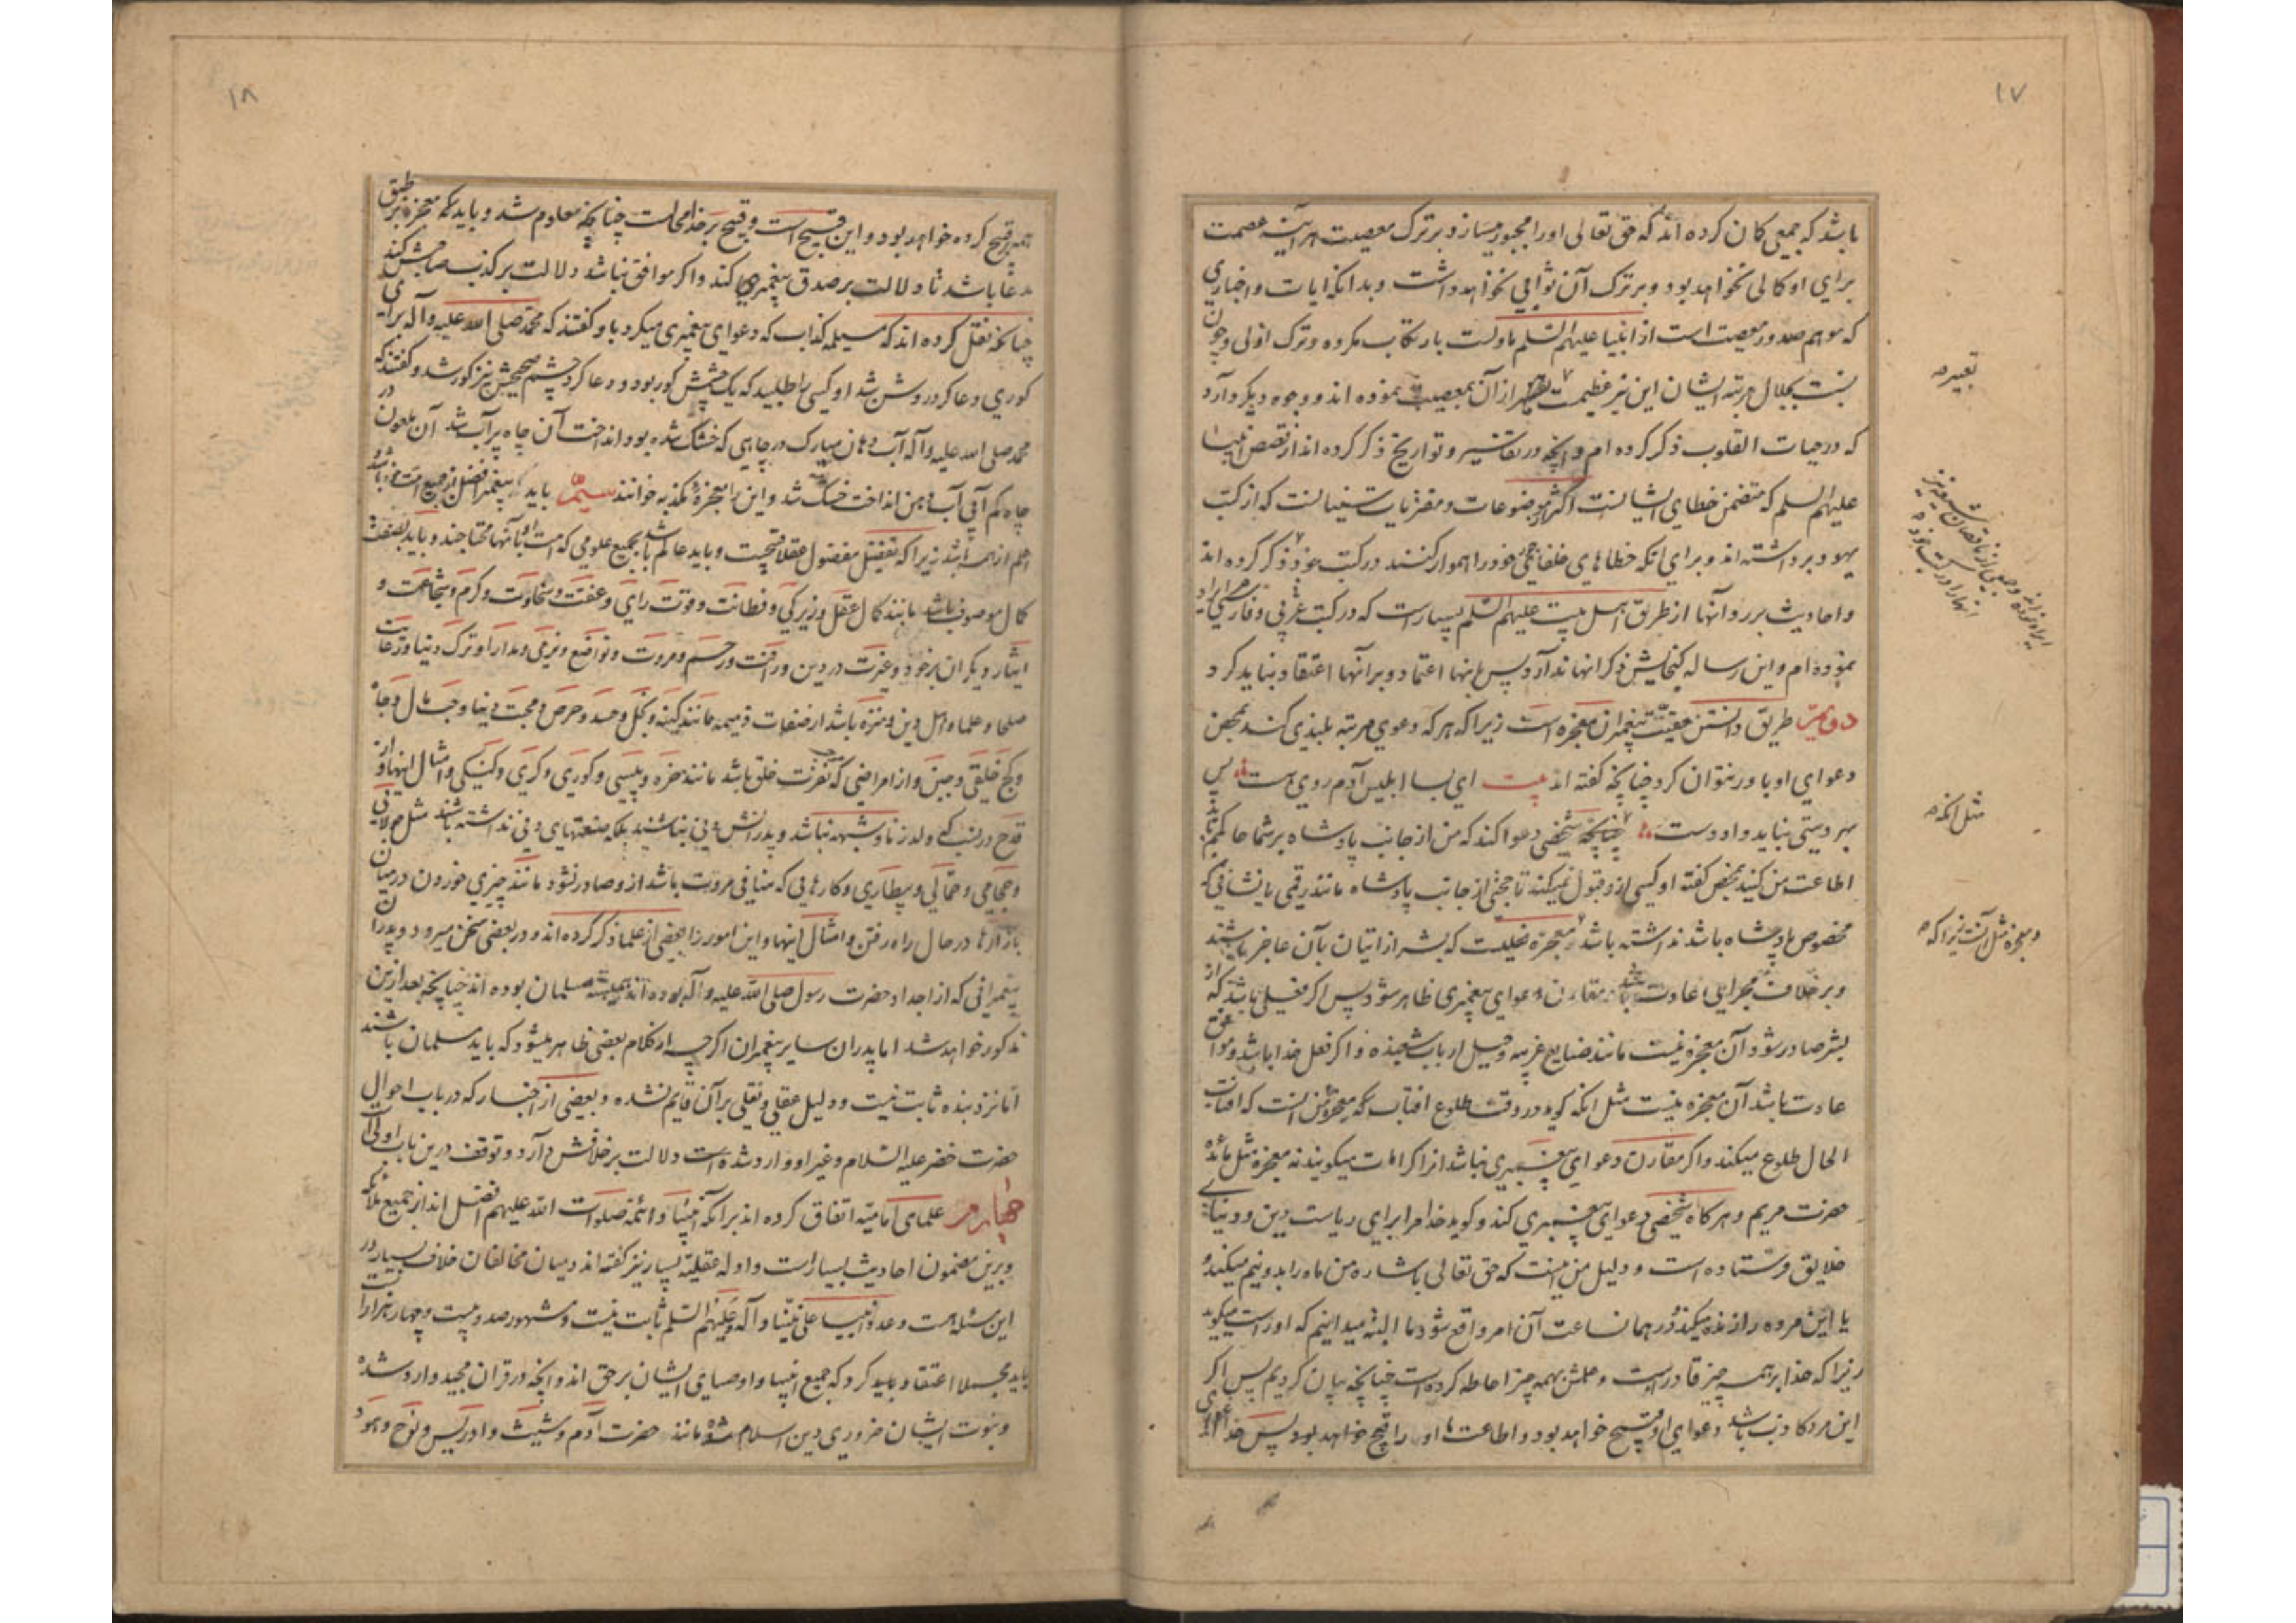 ۱۷
باشد که جمعی کان کرده اند که حق تعالی اورا مجبور میسازد بر ترک معصیت هر آینه عصمت
برای او کمالی نخواهد بود و بر ترک آن ثوابی نخواهد داشت و بدانکه ایات و اخباری
که موهم صدور معصیت است از انبیا علیهم السلم ماولست بارتکاب مکروه و ترک اولی و چون
نسبت بجلال مرتبه ایشان این نیز عظیمست از آن بمعصیت نموده اند و وجوه دیگر دارد
که در حیات القلوب ذکر کرده ام و انچه در تفاسیر و تواریخ ذکر کرده اند از قصص انبیا
علیهم السلم که متضمن خطای ایشانست اکثر موضوعات و مفتریات سنیانست که از کتب
یهود برداشته اند و برای انکه خطاهای خلفای خود را هموار کنند در کتب خود ذکر کرده اند
و احادیث بر رد آنها از طریق اهل بیت علیهم السلم بسیارست که در کتب عربی و فارسی ایراد
نموده ام و این رساله گنجایش ذکر انها ندارد پس باینها اعتماد و برانها اعتقاد نباید کرد
دویم طریق دانستن حقیت پیغمبران معجزه است زیرا که هر که دعوی مرتبه بلندی کند بمحض
دعوای او باور نتوان کرد چنانچه گفته اند بیت ای بسا ابلیس آدم روی هست پس
بهر دستی نباید داد دست چنانچه شخصی دعوا کند که من از جانب پادشاه بر شما حاکمم باید
اطاعت من کنید بمحض گفته او کسی ازو قبول نمیکند تا حجتی از جانب پادشاه مانند رقمی یا نشانی که
مخصوص پادشاه باشد نداشته باشد و معجزه فعلیست که بشر از اتیان بآن عاجز باشند
و بر خلاف مجرای عادت باشد مقارن دعوای پیغمبری ظاهر شود پس اگر فعلی باشد که از
بشر صادر شود آن معجزه نیست مانند صنایع غریبه و حیل ارباب شعبده و اگر فعل خدا باشد و موافق
عادت باشد آن معجزه نیست مثل انکه گوید در وقت طلوع افتاب که معجزه من انست که افتاب
الحال طلوع میکند و اگر مقارن دعوای پیغمبری نباشد انرا کرامات میگویند نه معجزه مثل مائده
حضرت مریم و هر کاه شخصی دعوای پیغمبری کند و گوید خدا مرا برای ریاست دین و دنیای
خلایق فرستاده است و دلیل من اینست که حق تعالی باشاره من ماه را بدو نیم میکند و
یا این مرده را زنده میکند و در همان ساعت آن امر واقع شود ما البته میدانیم که او راست میگوید
زیرا که خدا بر همه چیز قادر است و علمش بهمه چیز احاطه کرده است چنانچه بیان کردیم پس اگر
این مرد کاذب باشد دعوای او قبیح خواهد بود و اطاعت او را قبیح خواهد بود پس خدا
تعبیر
مثل انکه
و معجزه مثل آنست زیرا که
۱۸
قبیح کرده خواهد بود و این قبیح است و قبیح بر خدا محالست چنانچه معلوم شد و باید که معجزه بر طبق
مدعا باشد تا دلالت بر صدق پیغمبری کند و اگر موافق نباشد دلالت بر کذب صاحبش کند
چنانچه نقل کرده اند که مسیلمه کذاب که دعوای پیغمبری میکرد باو گفتند که محمد صلی الله علیه و آله برای
کوری دعا کرد روشن شد او کسی را طلبید که یک چشمش کور بود و دعا کرد چشم صحیحش نیز کور شد و گفتند که
محمد صلی الله علیه و آله آب دهان مبارک در چاهی که خشک شده بود انداخت آن چاه پر آب شد آن ملعون در
چاه کم آبی آب دهن انداخت خشک شد و این را معجزه مکذبه خوانند سیم باید که پیغمبر افضل از جمیع امت خود باشد و
اعلم از همه باشد زیرا که تفضیل مفضول عقلا قبیحست و باید عالم باشد بجمیع علومی که امت او بآنها محتاجند و باید بصفات
کمال موصوف باشد مانند کمال عقل و زیرکی و فطانت و قوت رای و عفت و سخاوت و کرم و شجاعت و
ایثار دیگران بر خود و غیرت در دین و رافت و رحم و مروت و تواضع و نرمی و مدارا و ترک دنیا و رعایت
صلحا و علما و اهل دین و منزه باشد از صفات ذمیمه مانند کینه و بخل و حسد و حرص و محبت دنیا و حب مال و جاه
و کج خلقی و جبن و از امراضی که نفرت خلق باشد مانند خوره و پیسی و کوری و کری و گنگی و امثال اینها و از
قدح در نسب که ولد زنا و شبهه نباشد و پدرانش دنی نباشند بلکه صنعتهای دنی نداشته باشند مثل جولایی
و حجامی و حمالی و بیطاری و کارهایی که منافی مروت باشد ازو صادر نشود مانند چیزی خوردن در میان
بازارها در حال راه رفتن و امثال اینها و این امور را بعضی از علما ذکر کرده اند و در بعضی سخن میرود و پدران
پیغمبرانی که از اجداد حضرت رسول صلی الله علیه و آله بوده اند همیشه مسلمان بوده اند چنانچه بعد ازین
مذکور خواهد شد اما پدران سایر پیغمبران اگرچه از کلام بعضی ظاهر میشود که باید مسلمان باشند
اما نزد بنده ثابت نیست و دلیل عقلی و نقلی بر آن قایم نشده و بعضی از اخبار که در باب احوال
حضرت خضر علیه السلام و غیر او وارد شده است دلالت بر خلافش دارد و توقف درین باب اولی است
چهارم علمای امامیه اتفاق کرده اند بر انکه انبیا و ائمه صلوات الله علیهم افضل اند از جمیع ملائکه
و برین مضمون احادیث بسیار است و ادله عقلیه بسیار نیز گفته اند و میان مخالفان خلاف بسیار در
این مسئله هست و عدد انبیا علی نبینا و آله و علیهم السلم ثابت نیست و مشهور صد و بیست و چهار هزار است
باید مجملا اعتقاد باید کرد که جمیع انبیا و اوصیای ایشان بر حق اند و انچه در قران مجید وارد شده
و نبوت ایشان ضروری دین اسلام شده مانند حضرت آدم و شیث و ادریس و نوح و هود